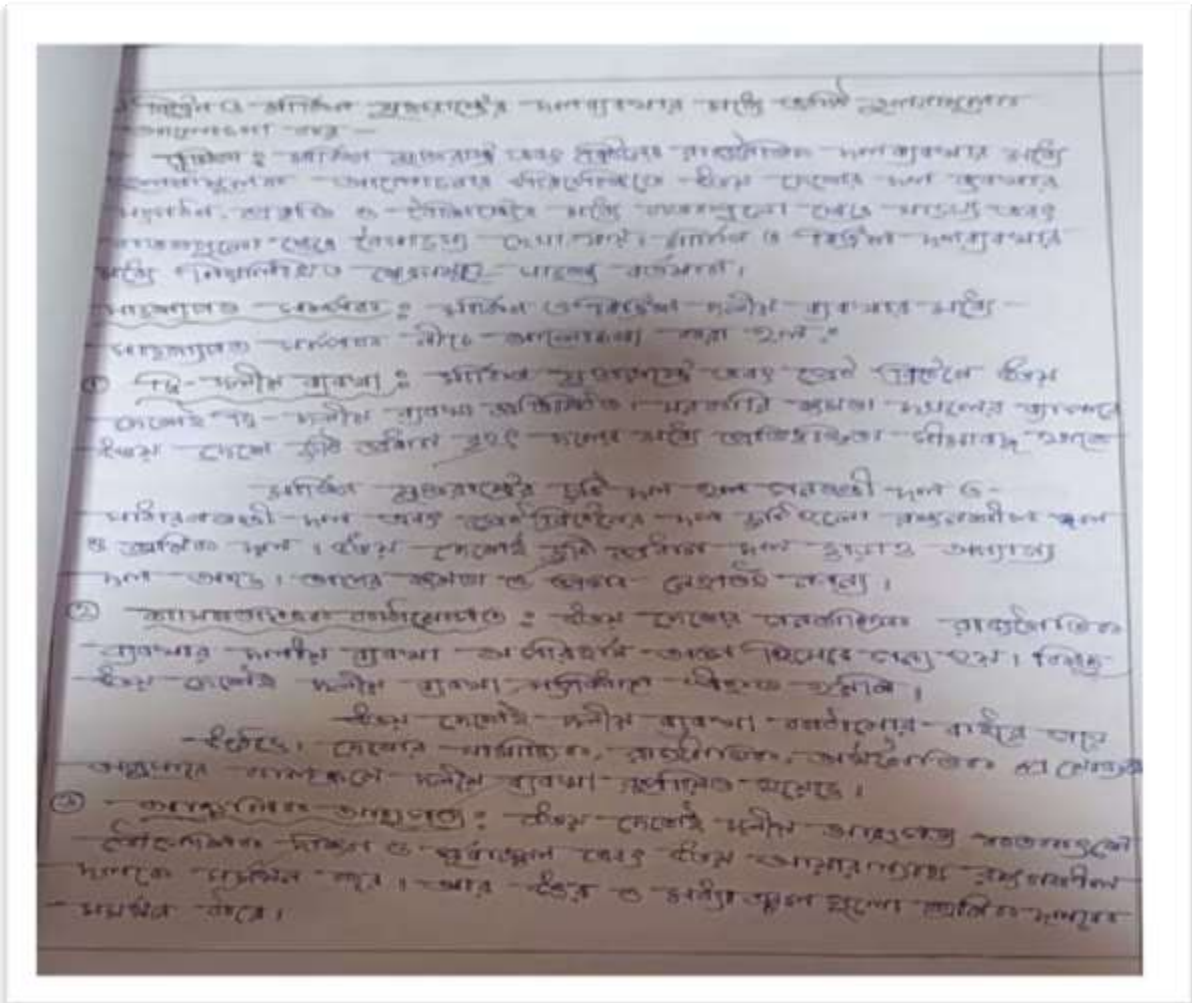 ব্রিটেন ও মার্কিন যুক্তরাষ্ট্রের দলব্যবস্থার মধ্যে একটি তুলনামূলক
আলোচনা কর –
ভূমিকা : মার্কিন যুক্তরাষ্ট্র এবং ব্রিটেনের রাজনৈতিক দলব্যবস্থার মধ্যে
তুলনামূলক আলোচনার পরিপ্রেক্ষিতে উভয় দেশের দল ব্যবস্থার
প্রকৃতি ও বৈশিষ্ট্যের মধ্যে কতকগুলো ক্ষেত্রে সাদৃশ্য এবং
কতকগুলো ক্ষেত্রে বৈসাদৃশ্য দেখা যায়। মার্কিন ও ব্রিটিশ দলব্যবস্থার
মধ্যে নিম্নলিখিত সাদৃশ্য বর্তমান।
সাদৃশ্যগত : মার্কিন ও ব্রিটিশ দলীয় ব্যবস্থার মধ্যে –
সাদৃশ্যগত নীচে আলোচনা করা হল :
① দ্বি-দলীয় ব্যবস্থা : মার্কিন যুক্তরাষ্ট্র এবং গ্রেট ব্রিটেনে উভয়
দেশেই দ্বি-দলীয় ব্যবস্থা প্রতিষ্ঠিত। সরকারি ক্ষমতা দখলের ব্যাপারে
উভয় দেশে দুটি প্রধান দলের মধ্যে প্রতিদ্বন্দ্বিতা সীমাবদ্ধ থাকে
মার্কিন যুক্তরাষ্ট্রের দুটি দল হল গণতন্ত্রী দল ও
সাধারণতন্ত্রী দল এবং গ্রেট ব্রিটেনের দল দুটি হলো রক্ষণশীল দল
ও শ্রমিক দল। উভয় দেশেই দুটি প্রধান দল ছাড়াও অন্যান্য
দল আছে। তাদের ক্ষমতা ও প্রভাব নেহাতই নগন্য।
② : উভয় দেশের গণতান্ত্রিক রাজনৈতিক
ব্যবস্থার দলীয় ব্যবস্থা অপরিহার্য অঙ্গ হিসেবে গন্য হয়। কিন্তু
উভয় দেশেই দলীয় ব্যবস্থা স্বীকৃত হয়নি।
উভয় দেশেই দলীয় ব্যবস্থা কাঠামোর বাইরে গড়ে
উঠেছে। দেশের সামাজিক, রাজনৈতিক, অর্থনৈতিক
কালক্রমে দলীয় ব্যবস্থা রূপায়িত হয়েছে।
③ আঞ্চলিক আনুগত্য : উভয় দেশেই দলীয় আনুগত্য
দক্ষিণ ও পূর্বাঞ্চল এবং উভয় রক্ষণশীল
দলকে সমর্থন করে। আর উত্তর ও মধ্যাঞ্চল হলো শ্রমিক দলকে
সমর্থন করে।